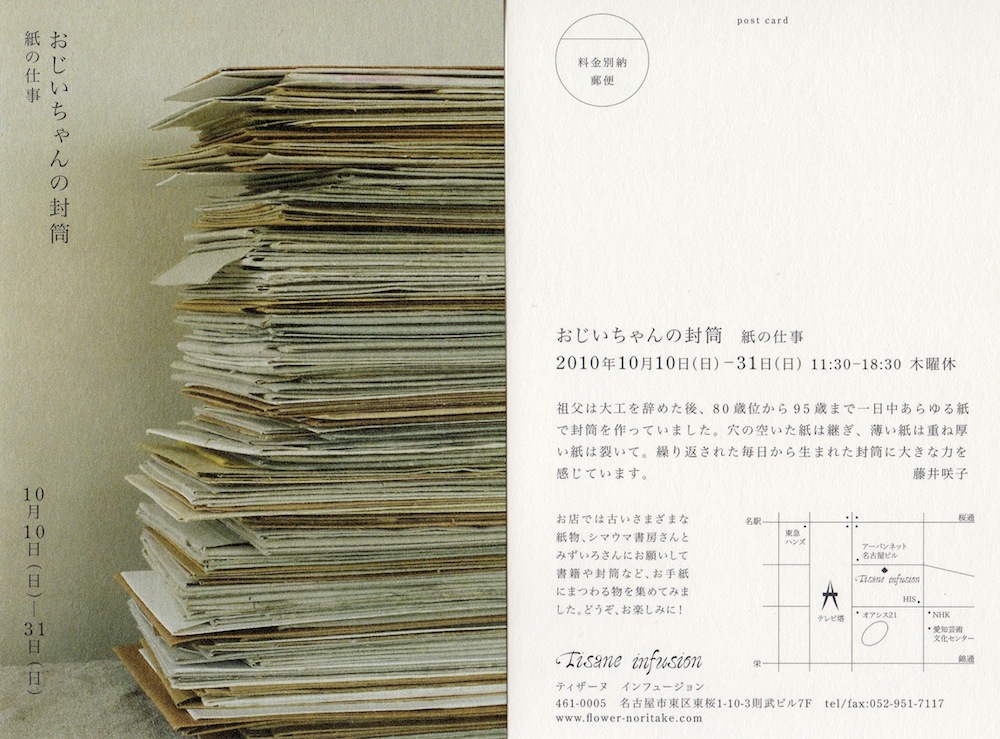 おじいちゃんの封筒
紙の仕事
10月10日（日）—31日（日）
post card
料金別納
郵便
おじいちゃんの封筒　紙の仕事
2010年10月10日（日）−31日（日） 11:30−18:30 木曜休
祖父は大工を辞めた後、80歳位から95歳まで一日中あらゆる紙
で封筒を作っていました。穴の空いた紙は継ぎ、薄い紙は重ね厚
い紙は裂いて。繰り返された毎日から生まれた封筒に大きな力を
感じています。　藤井咲子
お店では古いさまざまな
紙物、シマウマ書房さんと
みずいろさんにお願いして
書籍や封筒など、お手紙
にまつわる物を集めてみま
した。どうぞ、お楽しみに！
名駅
桜通
東急
ハンズ
アーバンネット
名古屋ビル
Tisane infusion
HIS
テレビ塔
オアシス21
NHK
愛知芸術
文化センター
栄
錦通
Tisane infusion
ティザーヌ　インフュージョン
461-0005　名古屋市東区東桜1-10-3則武ビル7F　tel/fax:052-951-7117
www.flower-noritake.com